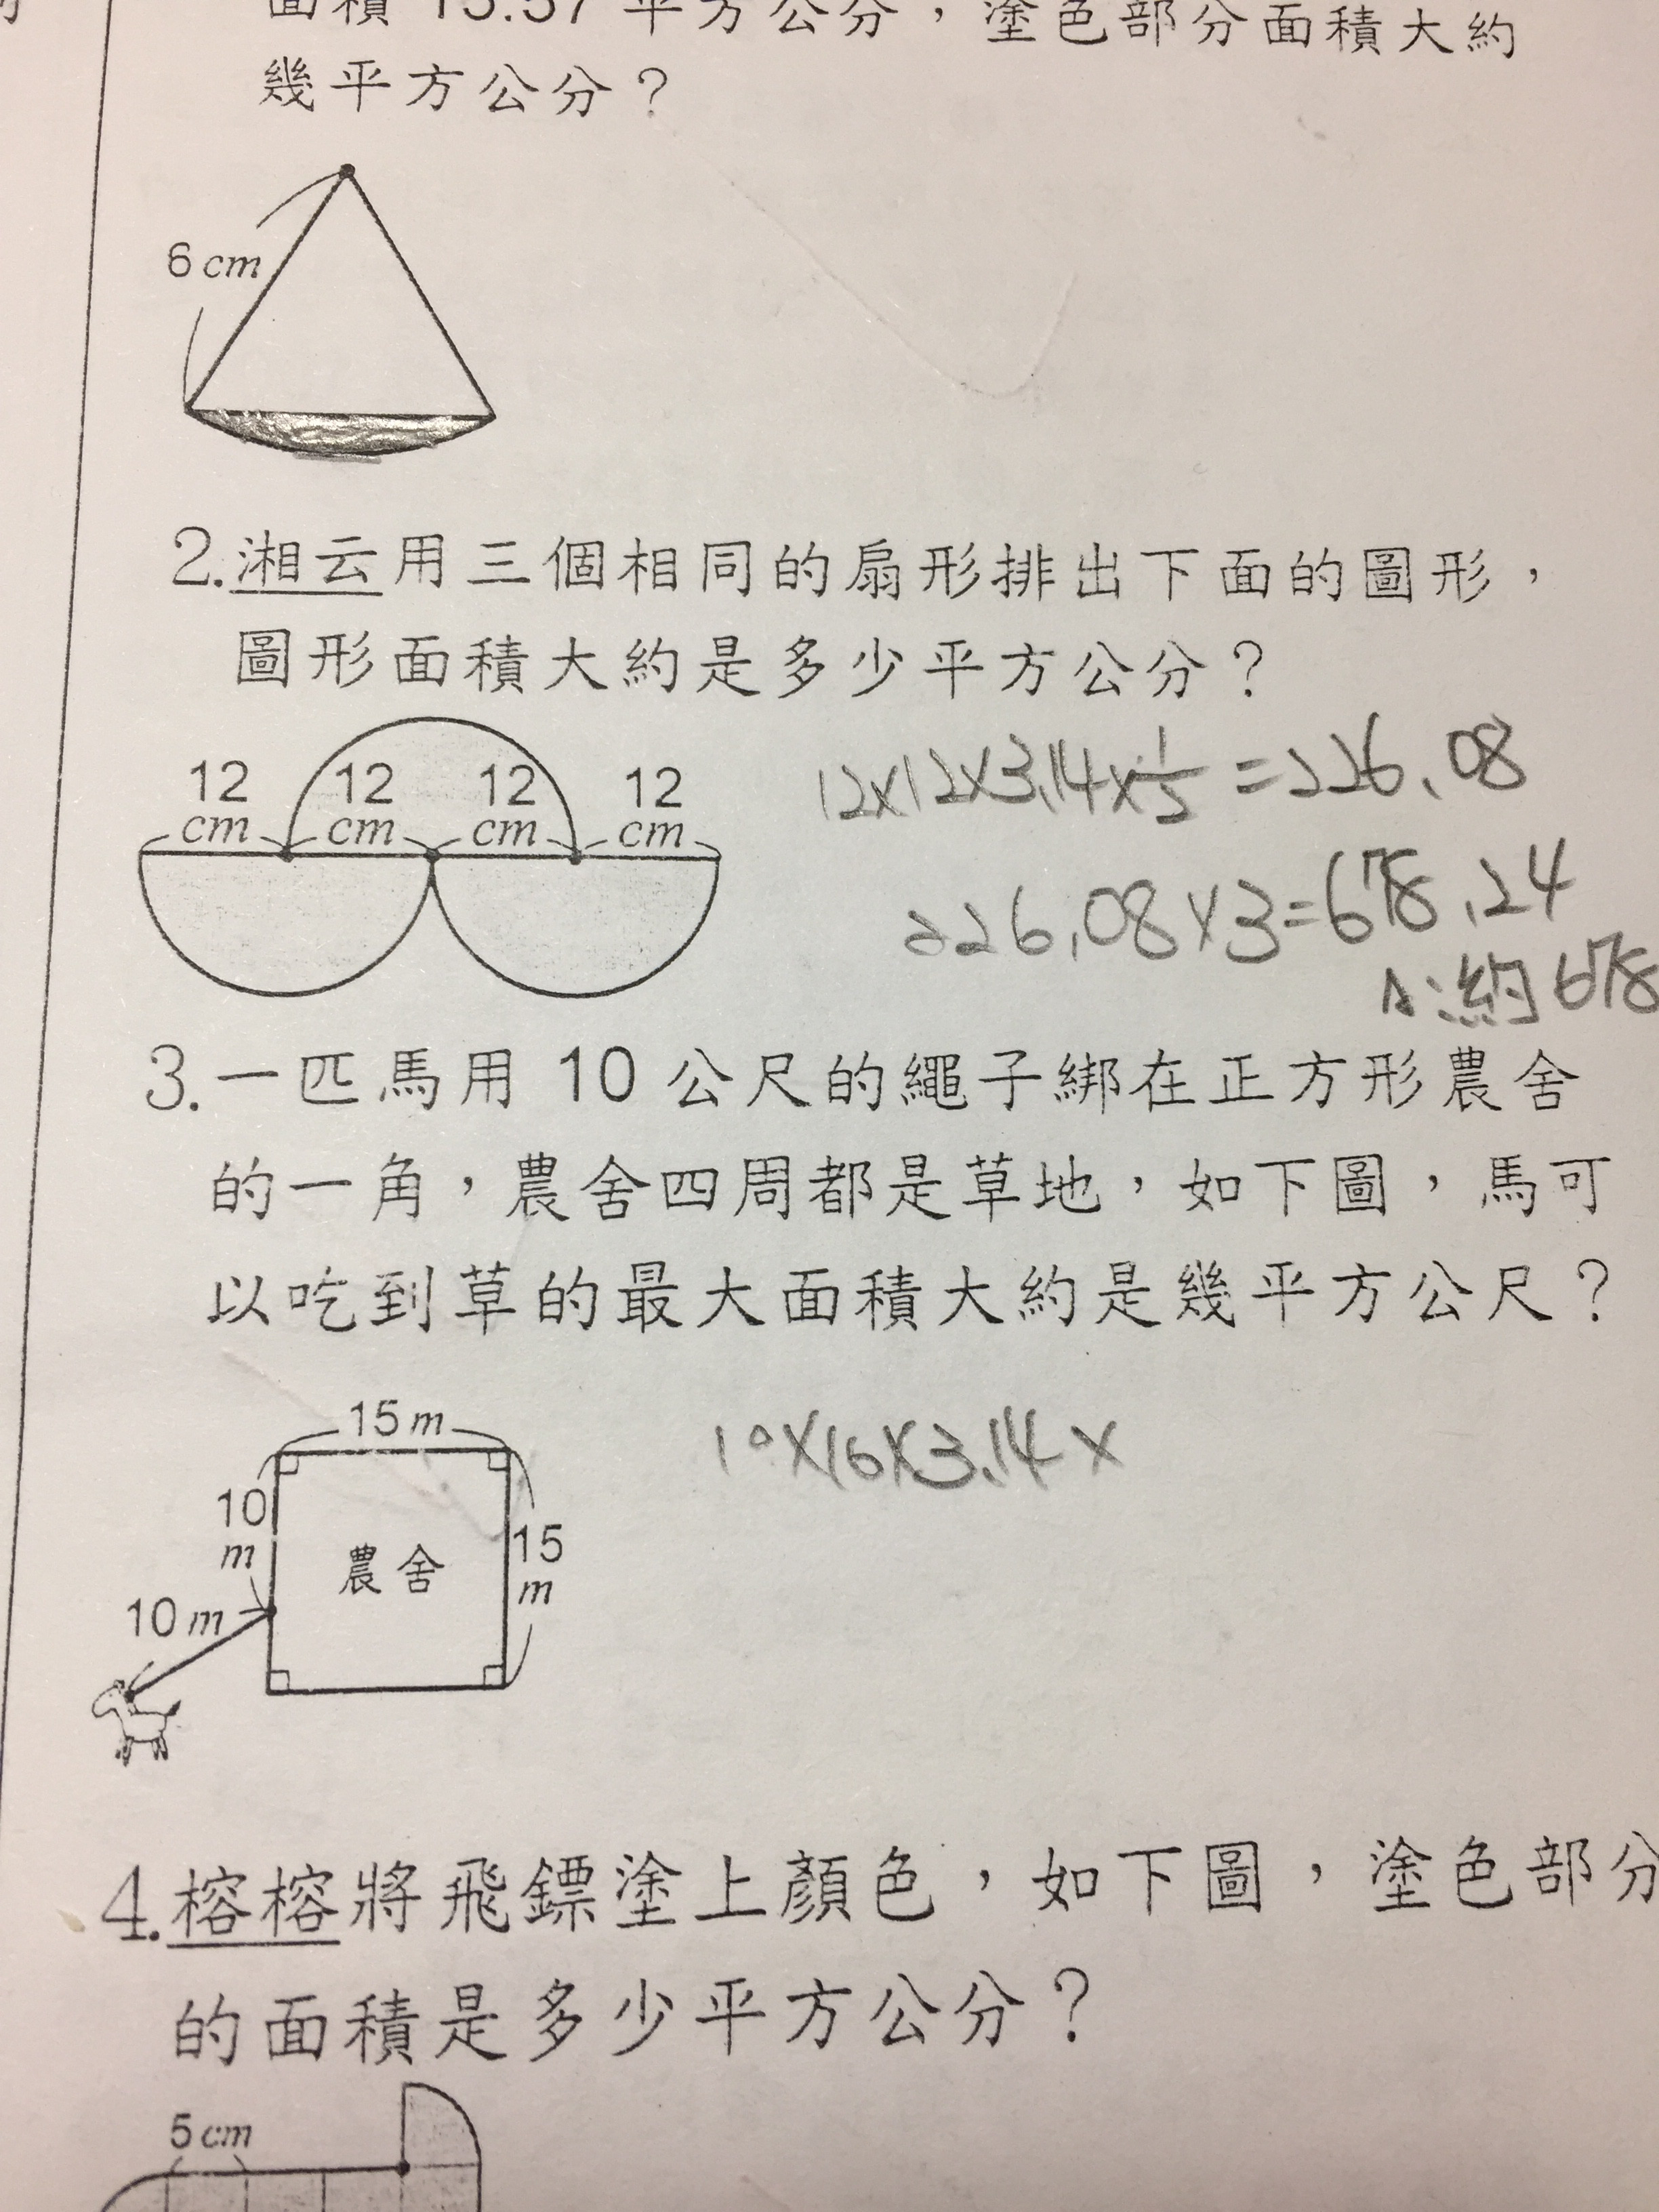 面積 15.57 平方公分，塗色部分面積大約
幾平方公分？
6 cm
2.湘云用三個相同的扇形排出下面的圖形，
圖形面積大約是多少平方公分？
12 12 12 12
cm cm cm cm
12×12×3.14×1/2=226.08
226.08×3=678.24
A:約678
3.一匹馬用 10 公尺的繩子綁在正方形農舍
的一角，農舍四周都是草地，如下圖，馬可
以吃到草的最大面積大約是幾平方公尺？
15 m
10×10×3.14×
10
m
農舍
15
m
10 m
4.榕榕將飛鏢塗上顏色，如下圖，塗色部分
的面積是多少平方公分？
5 cm